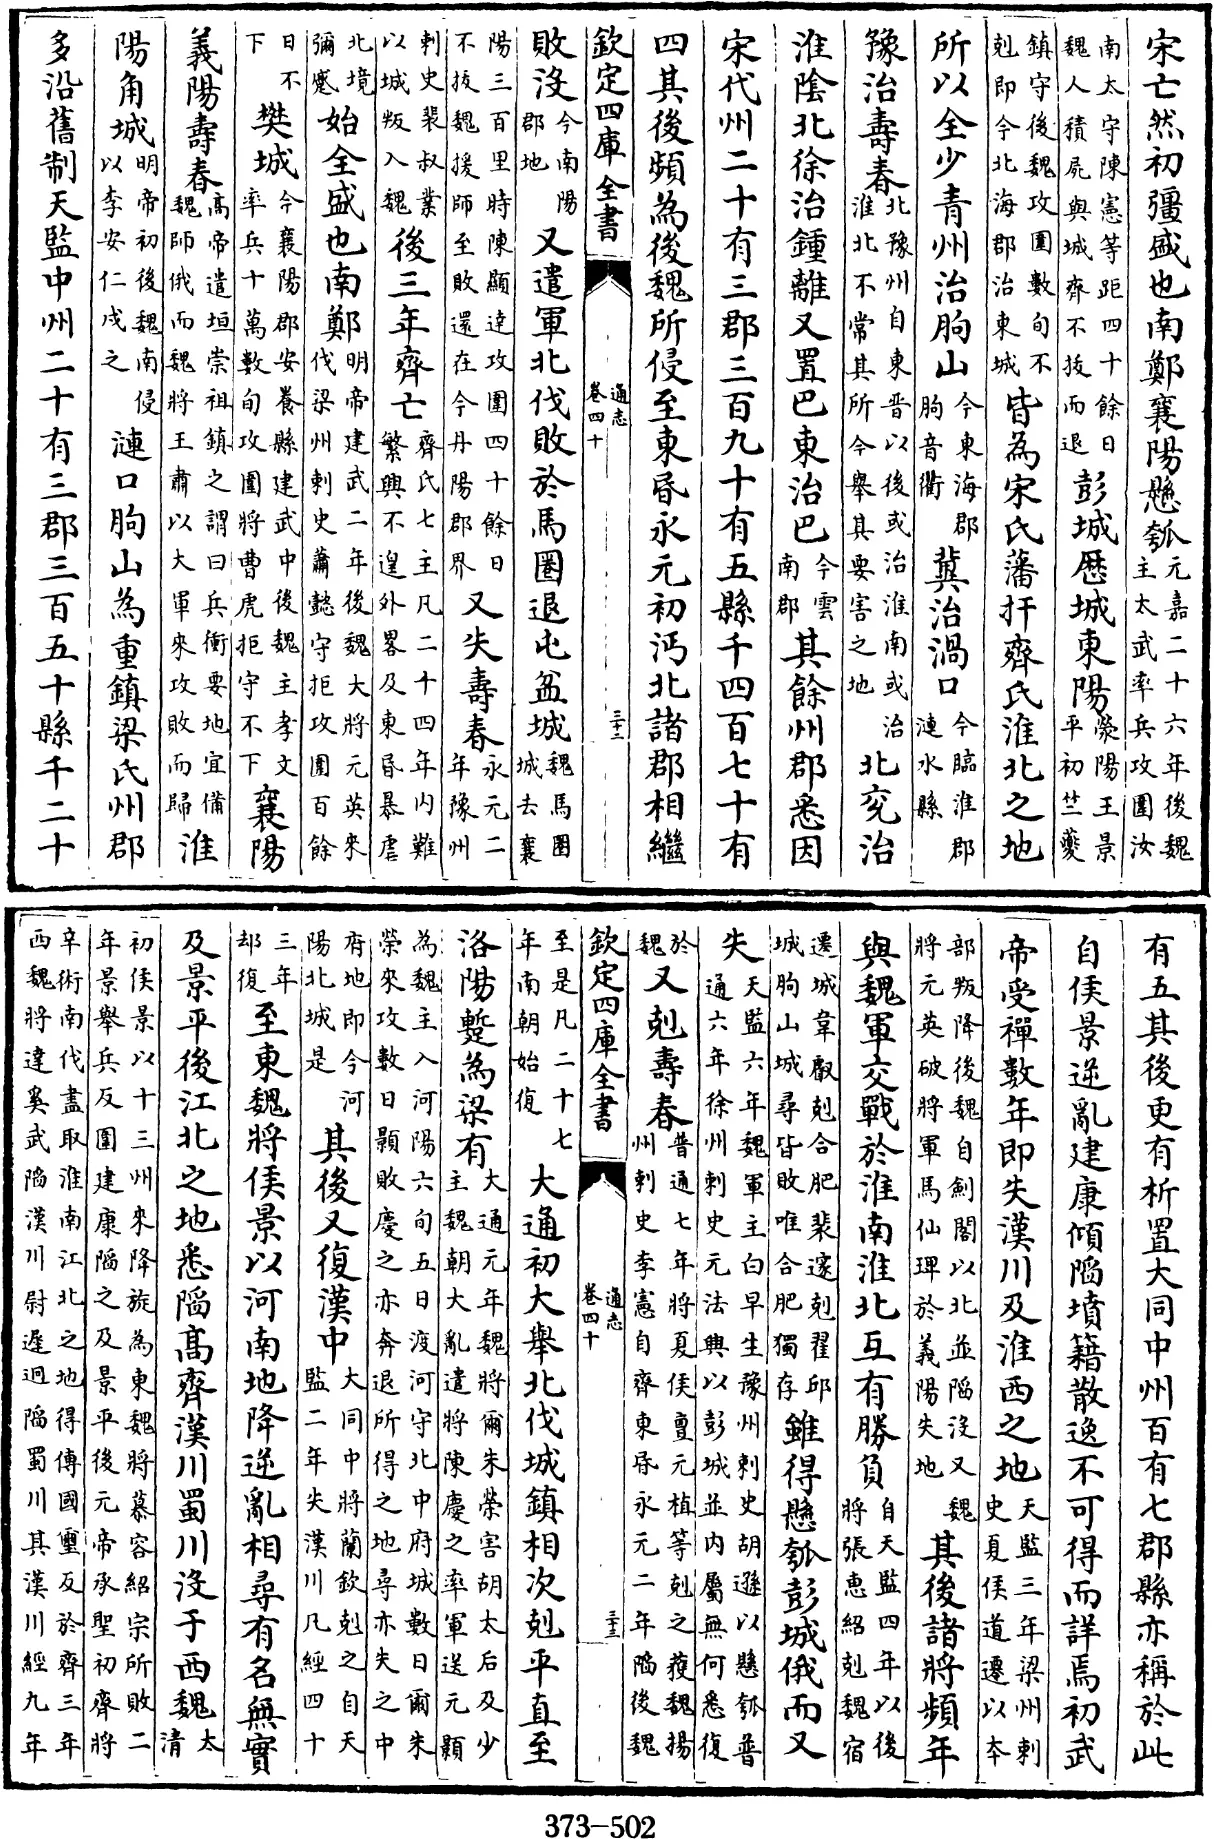 宋亡然初彊盛也南鄭襄陽懸瓠元嘉二十六年後魏主太武率兵攻圍汝
南太守陳憲等距四十餘日魏人積屍與城齊不拔而退彭城歴城東陽滎陽王景平初竺夔
鎮守後魏攻圍數旬不剋即今北海郡治東城皆為宋氏藩扞齊氏淮北之地
所以全少青州治朐山今東海郡朐音衢冀治渦口今臨淮郡漣水縣
豫治壽春北豫州自東晋以後或治淮南或治淮北不常其所今舉其要害之地北兖治
淮陰北徐治鍾離又置巴東治巴今雲南郡其餘州郡悉因
宋代州二十有三郡三百九十有五縣千四百七十有
四其後頻為後魏所侵至東昏永元初沔北諸郡相繼
欽定四庫全書 通志 卷四十 三十二
敗没今南陽郡地又遣軍北伐敗於馬圈退屯盆城魏馬圈城去襄
陽三百里時陳顯達攻圍四十餘日不拔魏援師至敗還在今丹陽郡界又失壽春永元二年豫州
刺史裴叔業以城叛入魏後三年齊亡齊氏七主凡二十四年内難繁興不遑外畧及東昏暴虐
北境彌蹙始全盛也南鄭明帝建武二年後魏大將元英來伐梁州刺史蕭懿守拒攻圍百餘
日不下樊城今襄陽郡安養縣建武中後魏主孝文率兵十萬數旬攻圍將曹虎拒守不下襄陽
義陽壽春高帝遣垣崇祖鎮之謂曰兵衝要地宜備魏師俄而魏將王肅以大軍來攻敗而歸淮
陽角城明帝初後魏南侵以李安仁戍之漣口朐山為重鎮梁氏州郡
多沿舊制天監中州二十有三郡三百五十縣千二十
有五其後更有析置大同中州百有七郡縣亦稱於此
自侯景逆亂建康傾陷墳籍散逸不可得而詳焉初武
帝受禪數年即失漢川及淮西之地天監三年梁州刺史夏侯道遷以本
部叛降後魏自劍閣以北並陷没又魏將元英破將軍馬仙琕於義陽失地其後諸將頻年
與魏軍交戰於淮南淮北互有勝負自天監四年以後將張惠紹剋魏宿
遷城韋叡剋合肥裴邃剋翟邱城朐山城尋皆敗唯合肥獨存雖得懸瓠彭城俄而又
失天監六年魏軍主白早生豫州刺史胡遜以懸瓠普通六年徐州刺史元法興以彭城並内屬無何悉復
於魏又剋壽春普通七年將夏侯亶元植等剋之獲魏揚州刺史李憲自齊東昏永元二年陷後魏
欽定四庫全書 通志 卷四十 三十三
至是凡二十七年南朝始復大通初大舉北伐城鎮相次剋平直至
洛陽蹔為梁有大通元年魏將爾朱榮害胡太后及少主魏朝大亂遣將陳慶之率軍送元顥
為魏主入河陽六旬五日渡河守北中府城數日爾朱榮來攻數日顥敗慶之亦奔退所得之地尋亦失之中
府地即今河陽北城是其後又復漢中大同中將蘭欽剋之自天監二年失漢川凡經四十
三年却復至東魏將侯景以河南地降逆亂相尋有名無實
及景平後江北之地悉陷高齊漢川蜀川没于西魏太清
初侯景以十三州來降旋為東魏將慕容紹宗所敗二年景舉兵反圍建康陷之及景平後元帝承聖初齊將
辛術南伐盡取淮南江北之地得傳國璽反於齊三年西魏將達奚武陷漢川尉遲迥陷蜀川其漢川經九年
373-502